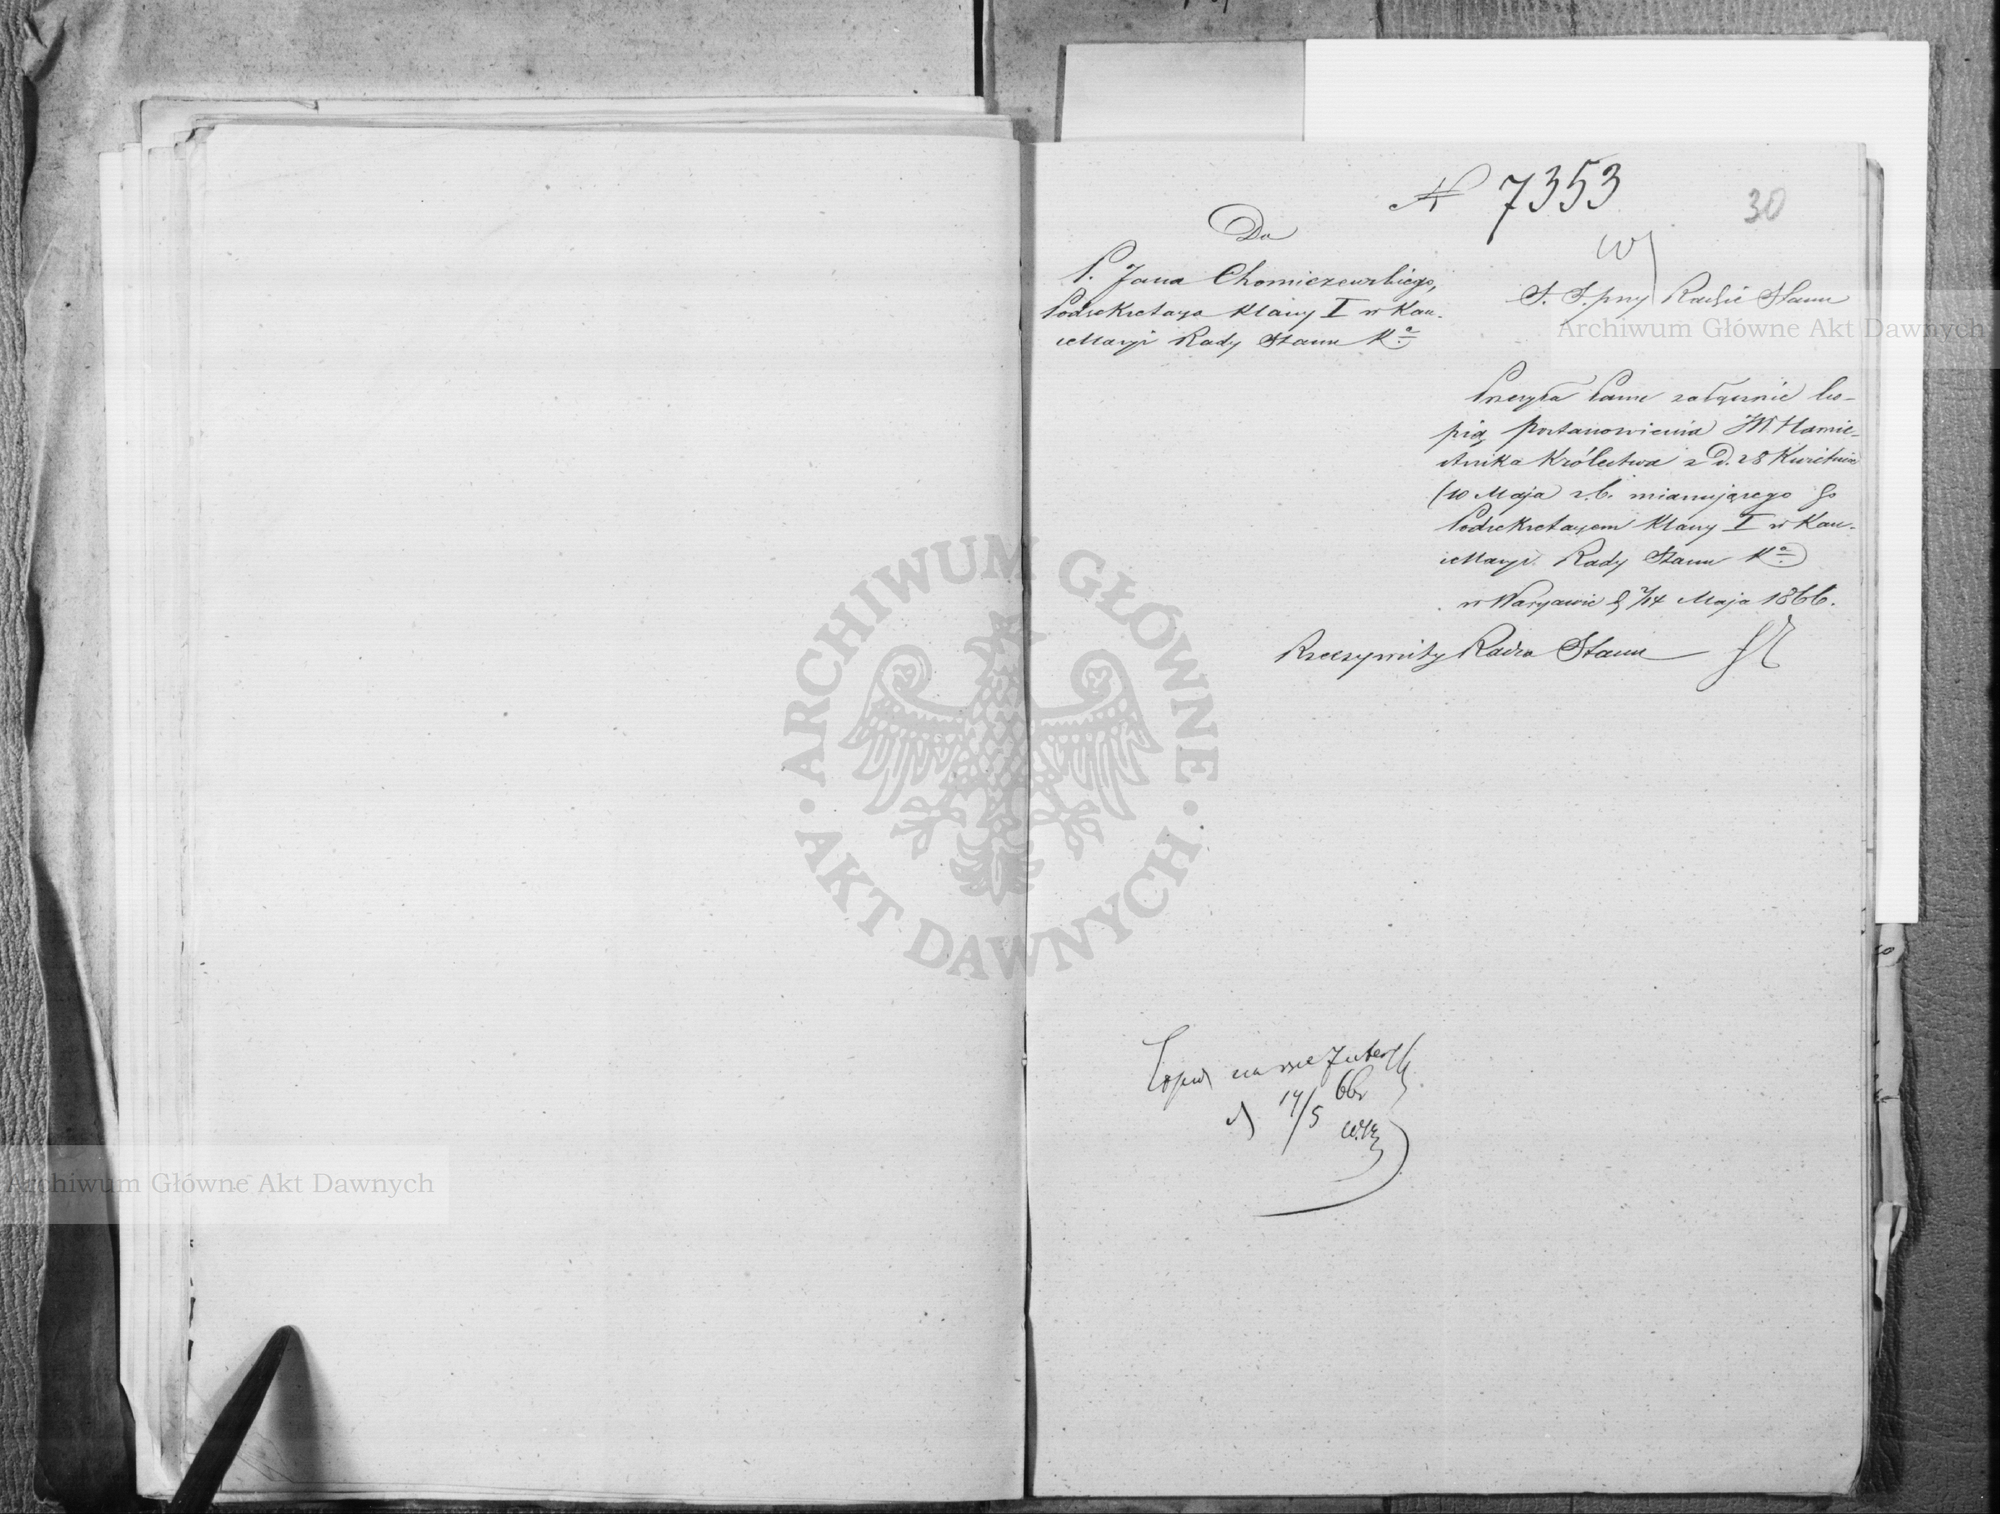 № 7353
30
Do
P. Jana Chomiczewskiego,
Podsekretarza Klassy I w Kan-
cellaryi Rady Stanu Ka
S. S. przy Radzie Stanu
Przesyła Panu załącznie ko-
pią Postanowienia JW. Namie-
stnika Królestwa z D. 28 Kwietnia
(10 Maja r.b. mianującego Go
Podsekretarzem Klassy I w Kan-
cellaryi Rady Stanu Ka
w Warszawie d 2/14 Maja 1866.
Rzeczywisty Radca Stanu
14/5 66
Archiwum Główne Akt Dawnych
Archiwum Główne Akt Dawnych
ARCHIWUM GŁÓWNE
AKT DAWNYCH